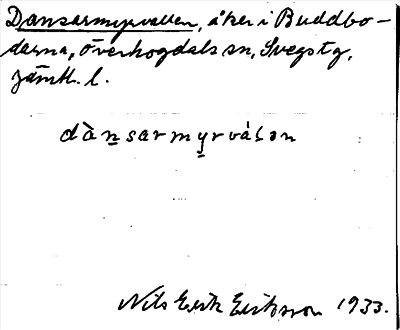 Dansarmyrvallen, åker i Buddbo-
darna, Överhogdals sn, Svegs tg,
Jämtl. l.
dànsarmyrválən
Nils Erik Eriksson 1933.